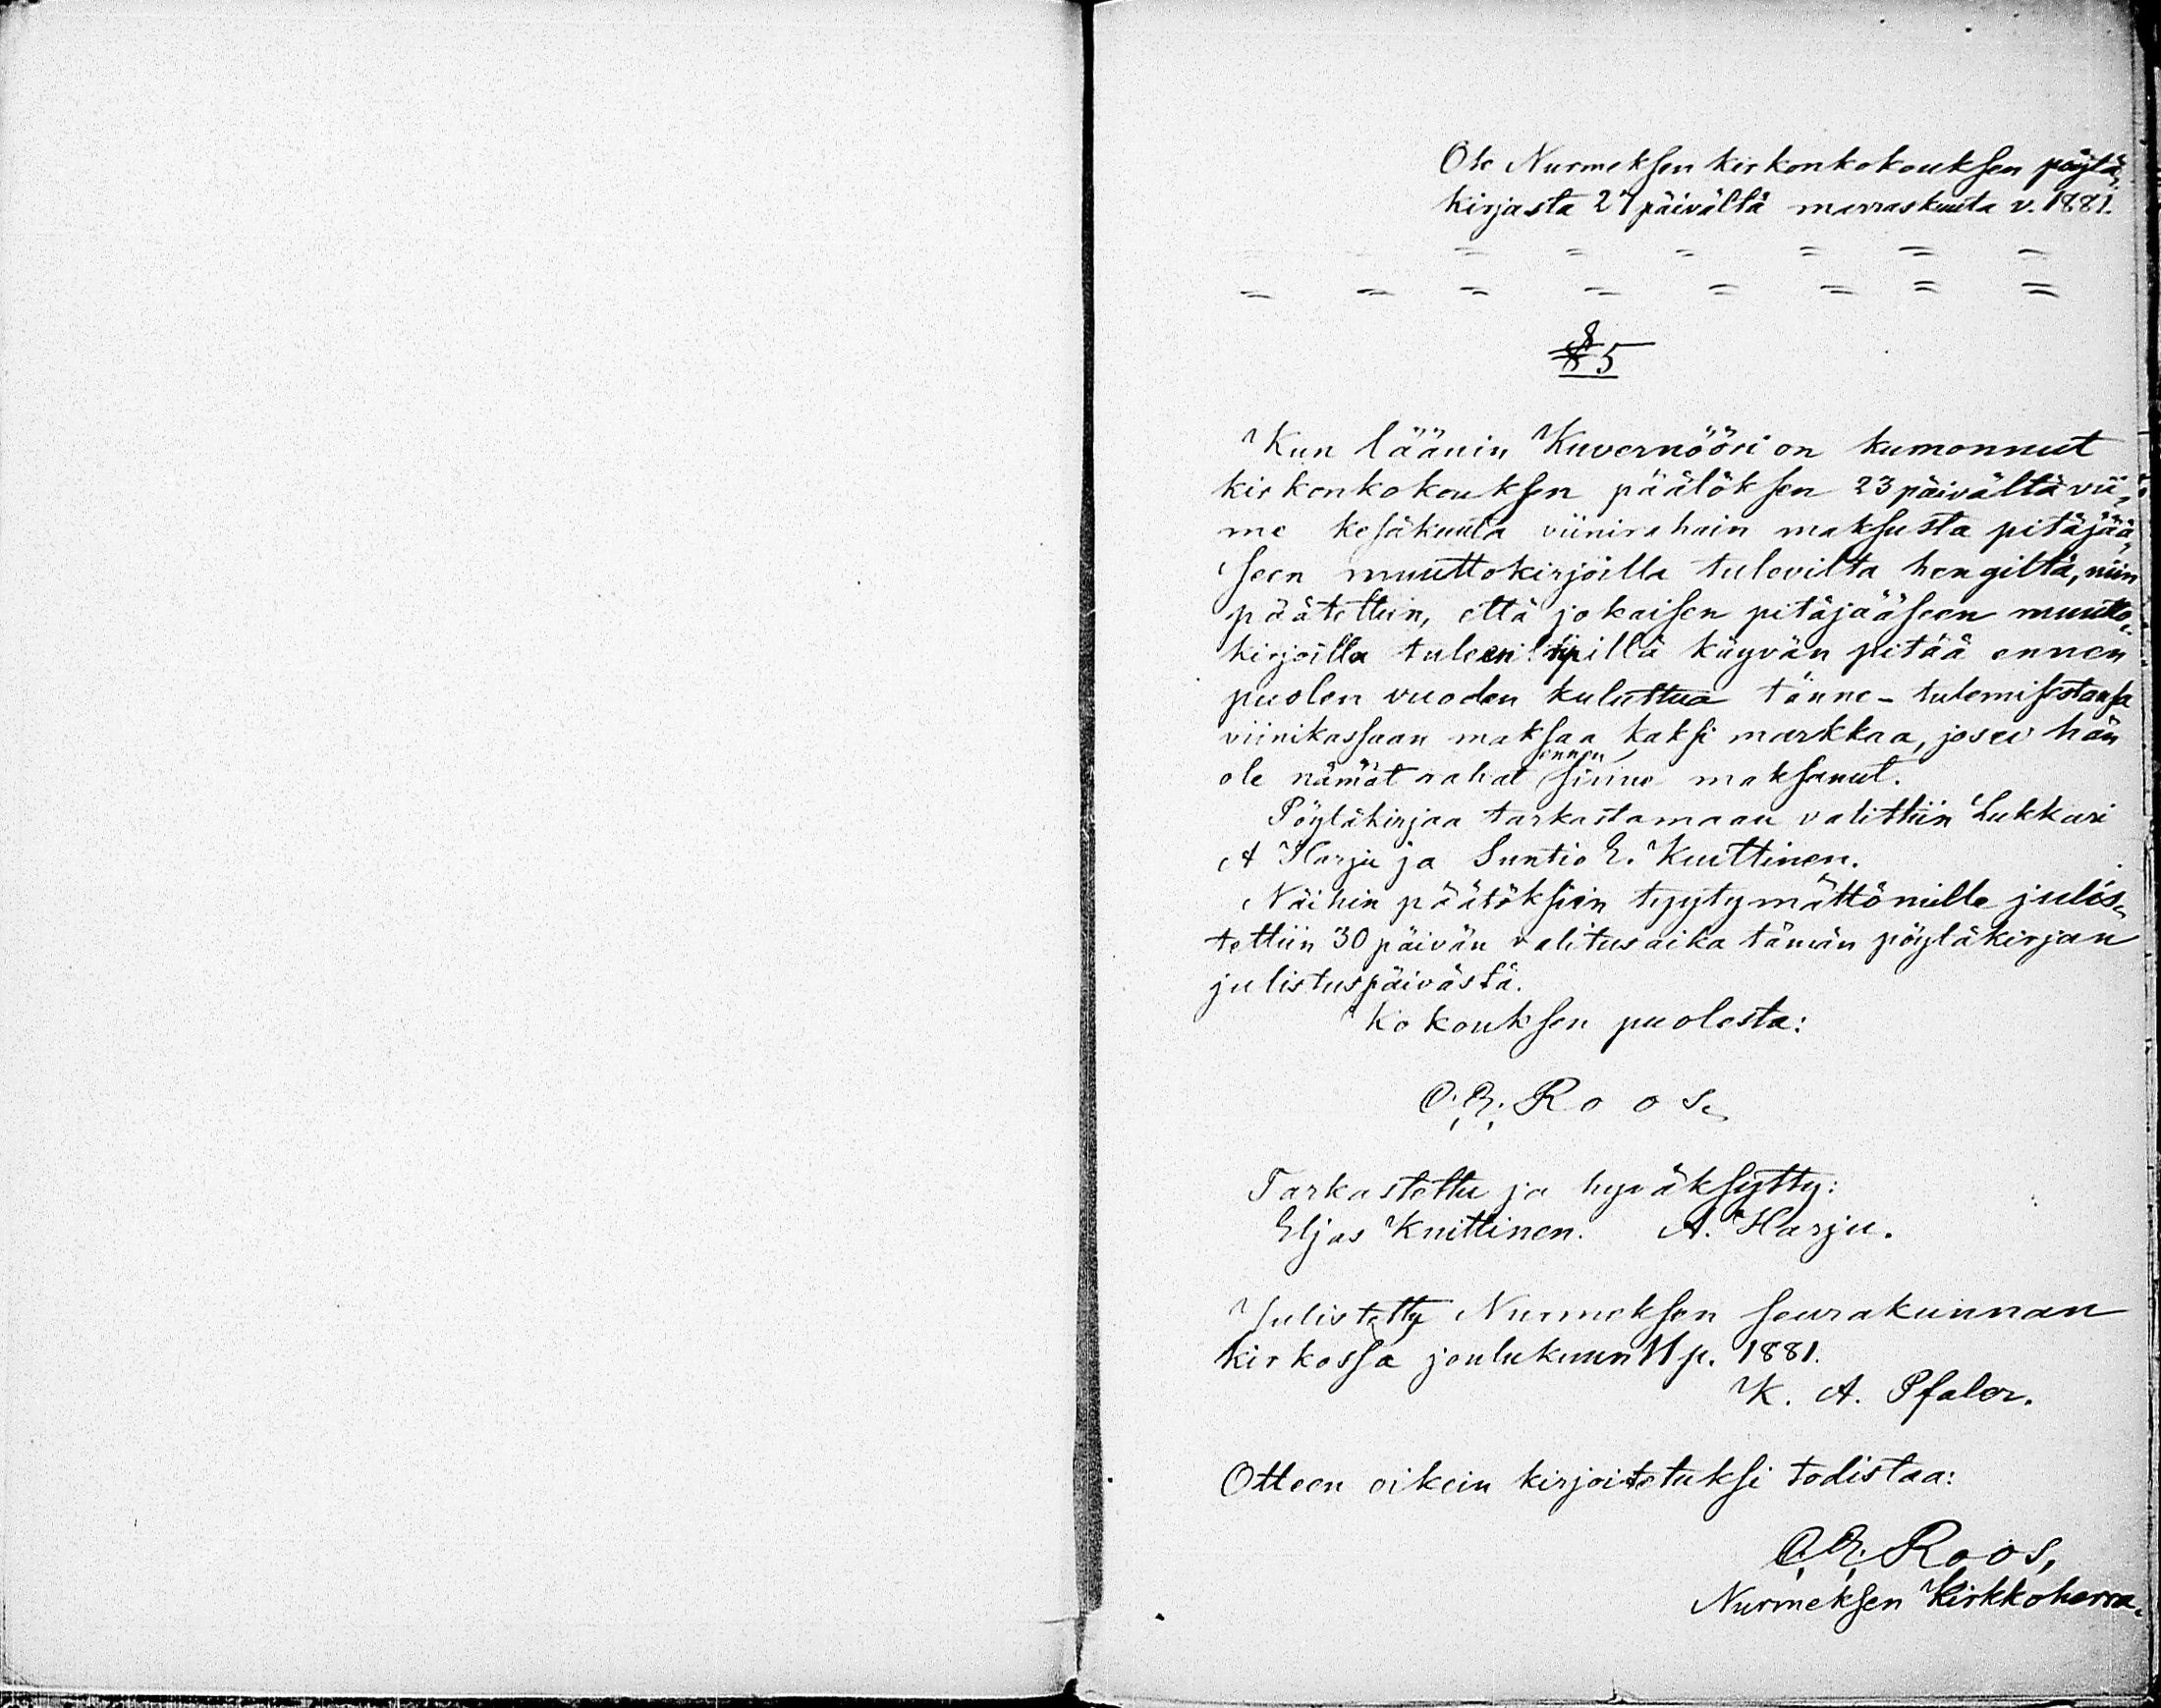 Ote Nurmeksen kirkonkokouksen pöytä„
kirjasta 27 päivältä marraskuuta v. 1881.
= = = = = =
= = = = = = = =
§ 5
Kun läänin Kuvernööri on kumonnut
kirkonkokouksen päätöksen 23 päivältä vii„
me kesäkuuta viinirahain maksusta pitäjää„
seen muuttokirjoilla tulevilta hengiltä, niin
päätettiin, että jokaisen pitäjääseen muutto„
kirjoilla tuleen ripillä käyvän pitää ennen
puolen vuoden kuluttua tänne-tulemisestansa
viinikassaan maksaa kaksi markkaa, jos ei hän
ennen
ole nämät rahat sinne maksanut.
Pöytäkirjaa tarkastamaan valittiin Lukkari
A Harju ja Suntio E. Kuittinen.
Näihin päätöksiin tyytymättömille julis„
tettiin 30 päivän valitusaika tämän pöytäkirjan
julistuspäivästä.
Kokouksen puolesta:
O. E. Roos.
Tarkastettu ja hyväksytty:
Eljas Kuittinen. A. Harju.
Julistettu Nurmeksen seurakunnan
kirkossa joulukuun 11 p. 1881.
K. A. Pfaler.
Otteen oikein kirjoitetuksi todistaa:
O. E. Roos,
Nurmeksen Kirkkoherra.